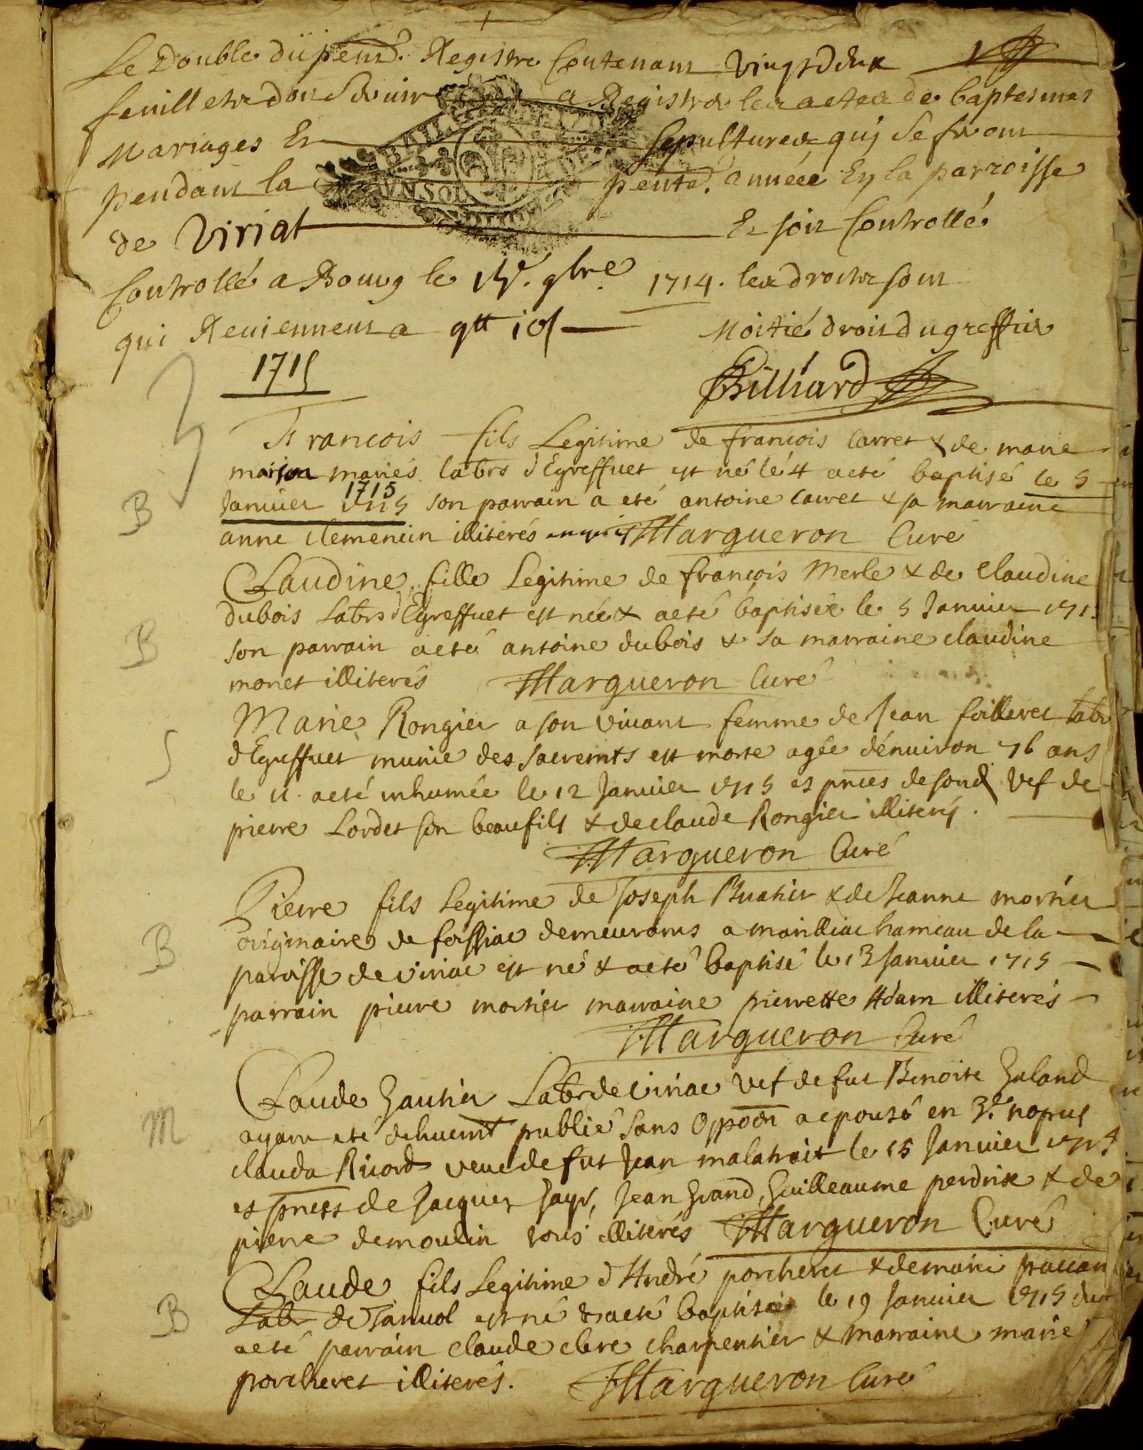 Le Double du pent. Registre Contenant vingt deux
feuillets dont Registrer les actes de baptesmes
Mariages Et Sepultures quj se feront
pendant la pente. année En la parroisse
de Viriat Et soit Controllé
Controllé a Bourg le 9bre 1714. les droits sont
qui Reviennent a Moitié droit du greffier
1715 Billiard
Francois fils Legitime de françois Carret & de marie
mariés labrs d'Egreffuet est né le 4 a eté baptisé le 5
Janvier 1715 1715 son parrain a eté antoine Carret & sa marraine
B
anne Clemencin illiterés Margueron Curé
Claudine fille Legitime de françois Merle & de Claudine
dubois Labrs d'Egreffuet est née & a eté baptisée le 5 Janvier 171
B
son parrain a eté antoine dubois & sa marraine claudine
monet illiterés Margueron Curé
Marie Rongier a son vivant femme de Jean foilleret Labr
S
d'Egreffuet munie des sacremts est morte agée d'enuiron 76 ans
le 11 a eté inhumée le 12 Janvier 1715 es pnces de vef de
pierre Lordet son beaufils & de claude Rongier illiterés.
Margueron Curé
Pierre fils Legitime de Joseph Buatier & de Jeanne mortier
B
originaires de foissiac demeurans a marilliac hameau de la
paroisse de viriac est né & a eté baptisé le 13 Janvier 1715
parrain pierre mortier marraine pierrette Adam illiterés
Margueron Curé
Claude Gautier Labr de viriac vef de fut Benoite Galand
M
ayant eté dehuemt publié sans Oppoon a epousé en 3e nopces
clauda Ricord veuve de fut Jean malatrait le 15 Janvier 1715
es pnces de Jacques Jayr, Jean Grand, Guilleaume perdrix & de
pierre demoulin tous illiterés Margueron Curé
Claude fils Legitime d'André porcheret & de marie
B
Labr de est né & a eté baptisé le 19 Janvier 1715
a eté parrain claude clerc charpentier & marraine marie
porcheret illiterés. Margueron Curé